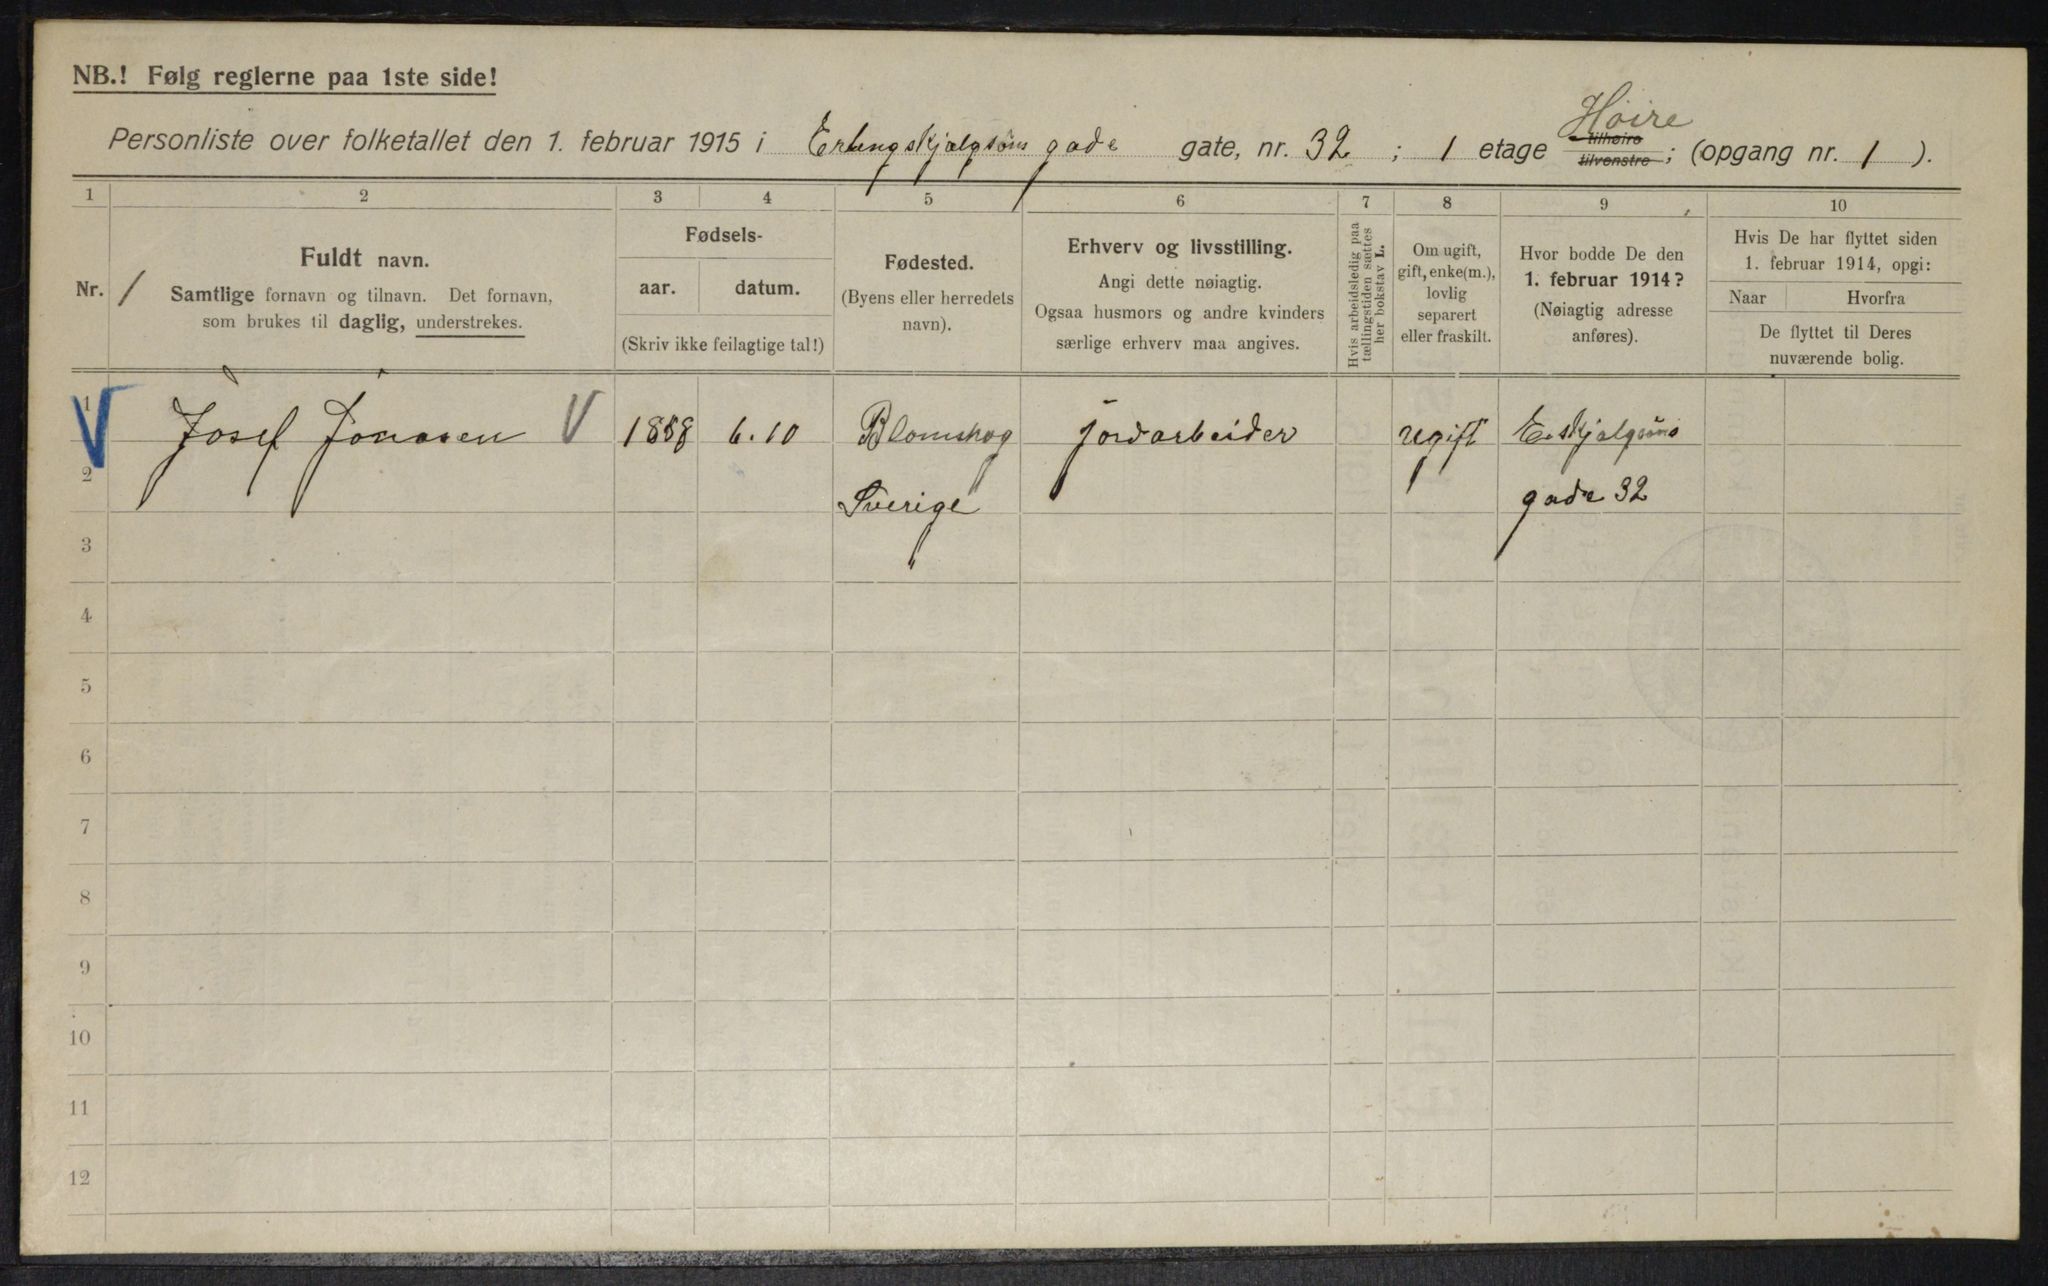 NB.! Følg reglerne paa 1ste side!
Høire
Personliste over folketallet den 1. februar 1915 i Erlingskjalgsøns gade gate, nr. 32 ; 1 etage tilhøire tilvenstre; (opgang nr. 1 ).
1 2 3 4 5 6 7 8 9 10
Nr. 1
Fuldt navn.
Samtlige fornavn og tilnavn. Det fornavn,
som brukes til daglig, understrekes.
Fødsels-
aar. datum.
(Skriv ikke feilagtige tal!)
Fødested.
(Byens eller herredets
navn).
Erhverv og livsstilling.
Angi dette nøiagtig.
Ogsaa husmors og andre kvinders
særlige erhverv maa angives.
Hvis arbeidsledig paa
tællingstiden sættes
her bokstav L.
Om ugift,
gift, enke(m.),
lovlig
separert
eller fraskilt.
Hvor bodde De den
1. februar 1914?
(Nøiagtig adresse
anføres).
Hvis De har flyttet siden
1. februar 1914, opgi:
Naar Hvorfra
De flyttet til Deres
nuværende bolig.
1 V Josef Jonasen V 1858 6.10 Blomskog jordarbeider ugift E. skjalgsøns
2 Sverige gade 32
3
4
5
6
7
8
9
10
11
12